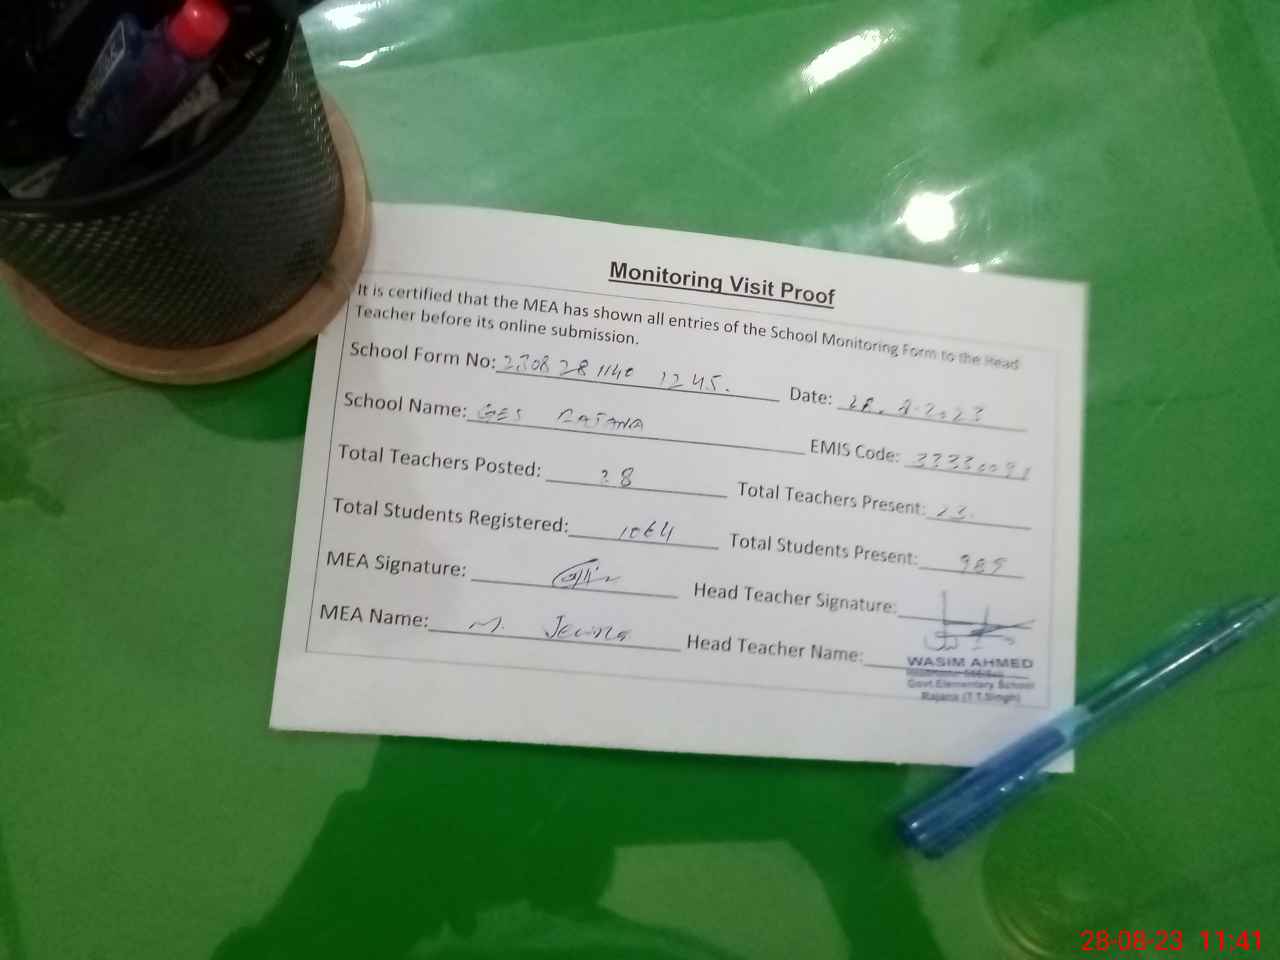 Monitoring Visit Proof
It is certified that the MEA has shown all entries of the School Monitoring Form to the Head
Teacher before its online submission.
School Form No: 230828 1140 1245. Date: 28.8.2023
School Name: GES RAJANA EMIS Code:
Total Teachers Posted: 28 Total Teachers Present: 23.
Total Students Registered: 1064 Total Students Present: 985
MEA Signature: Head Teacher Signature:
MEA Name: M. Head Teacher Name:
WASIM AHMED
Govt.Elementary School
Rajana (T.T.Singh)
28-08-23 11:41